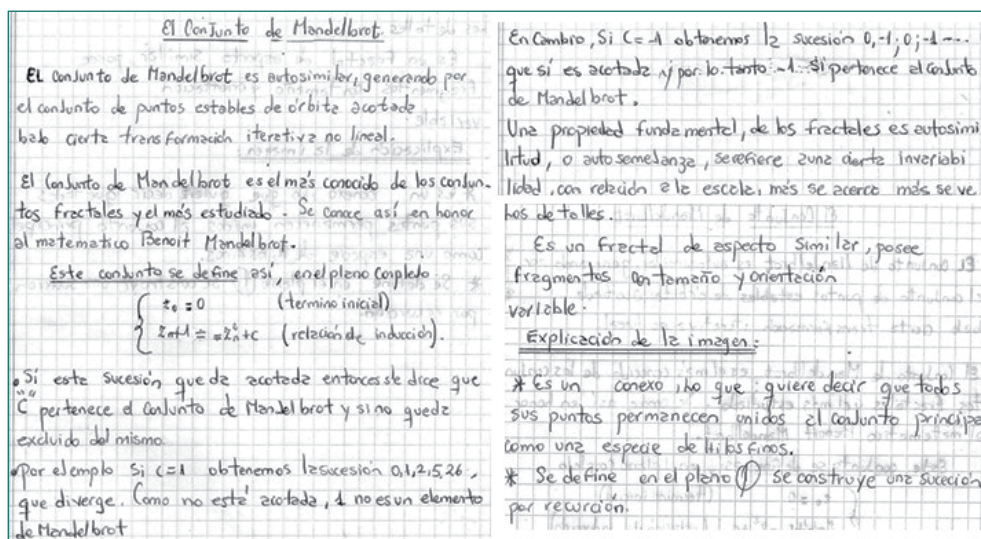 El Conjunto de Mandelbrot.
EL conjunto de Mandelbrot es autosimilar, generando por
el conjunto de puntos estables de órbita acotada
bajo cierta transformación iterativa no lineal.
El Conjunto de Mandelbrot es el más conocido de los conjun-
tos fractales y el más estudiado. Se conoce así en honor
al matematico Benoit Mandelbrot.
Este conjunto se define así, en el plano conpledo
z₀ = 0 (termino inicial)
zn+1 = =z²n+c (relación de inducción).
• Si esta sucesión queda acotada entonces se dice que
"C" pertenece al conjunto de Mandelbrot y si no queda
excluido del mismo.
• Por ejemplo si c=1 obtenemos la sucesión 0,1,2,5,26.,
que diverge. Como no está acotada, 1 no es un elemento
de Mandelbrot
En Cambio, Si C=-1 obtenemos la sucesión 0,-1;0;-1----
que sí es acotada y por lo tanto -1 si pertenece al conjunto
de Mandelbrot.
Una propiedad fundamental, de los fractales es autosimi
litud, o autosemejanza, se refiere a una cierta invariabi
lidad, con relación a la escala, más se acerca más se ve
los detalles.
Es un fractal de aspecto similar, posee
fragmentos con tamaño y orientación
variable.
Explicación de la imagen:
* Es un conexo, lo que quiere decir que todos
sus puntos permanecen unidos al conjunto principa
como una especie de Hilos finos.
* Se define en el plano se construye una suceción
por recurción.